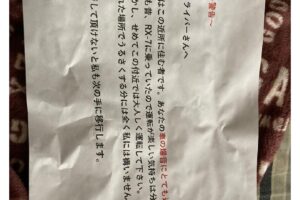 警告～
ライバーさんへ
はこの近所に住む者です。あなたの車の爆音にとても
も昔、RX-7に乗っていたので運転が楽しい気持ちは分
かし、せめてこの付近では大人しく運転して下さい。
れた場所でうるさくする分には全く私には構いません
して頂けないと私も次の手に移行します。